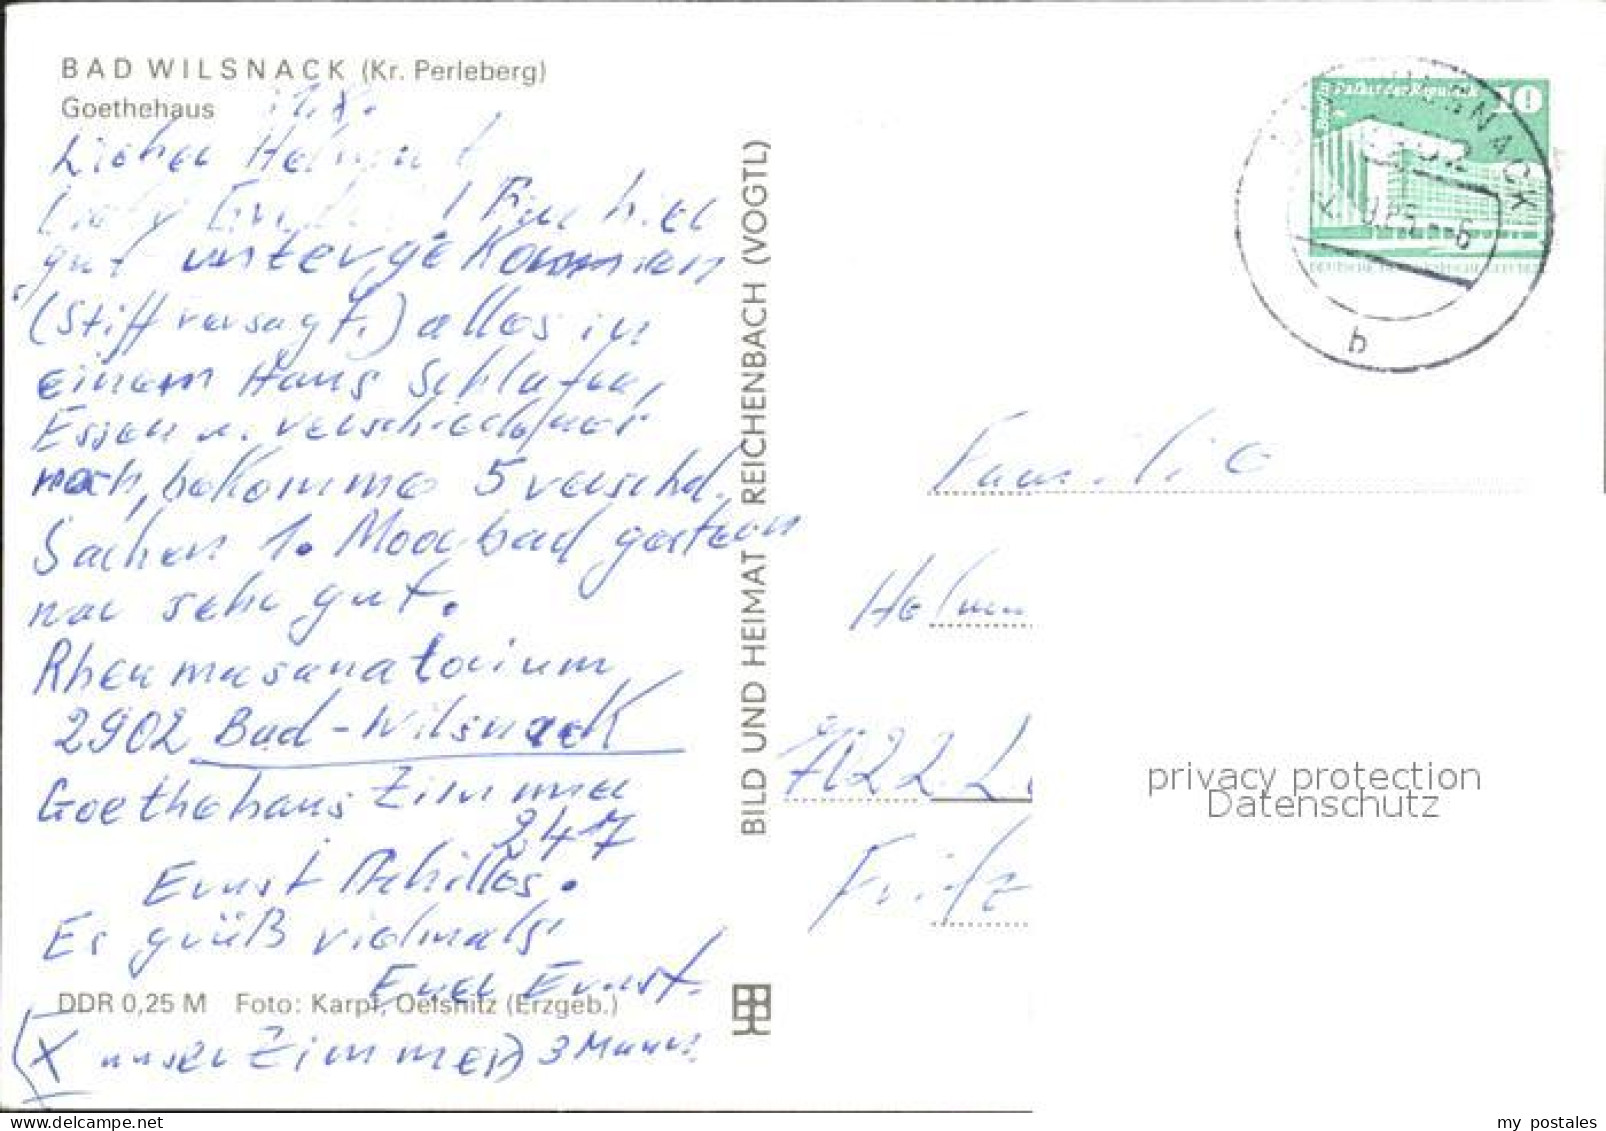 BAD WILSNACK (Kr. Perleberg)
Goethehaus
Lieber Helmut
! Bin hier
gut untergekommen
(Stift versagt.) alles in
einem Haus Schlafen,
Essen u. verschiedenes
noch, bekomme 5 verschd.
Sachen 1. Moorbad gestern
war sehr gut.
Rheumasanatorium
2902 Bad-Wilsnack
Goethehaus Zimmer
247
Ernst Achilles.
Es grüßt vielmals
Euer Ernst.
DDR 0,25 M Foto: Karpf, Oelsnitz (Erzgeb.)
(X unser Zimmer) 3 Mann
BILD UND HEIMAT REICHENBACH (VOGTL)
Berlin Palast der Republik 10
WILSNACK
2902
b
Familie
Helmu
7022 L
Fritz
privacy protection
Datenschutz
my postales